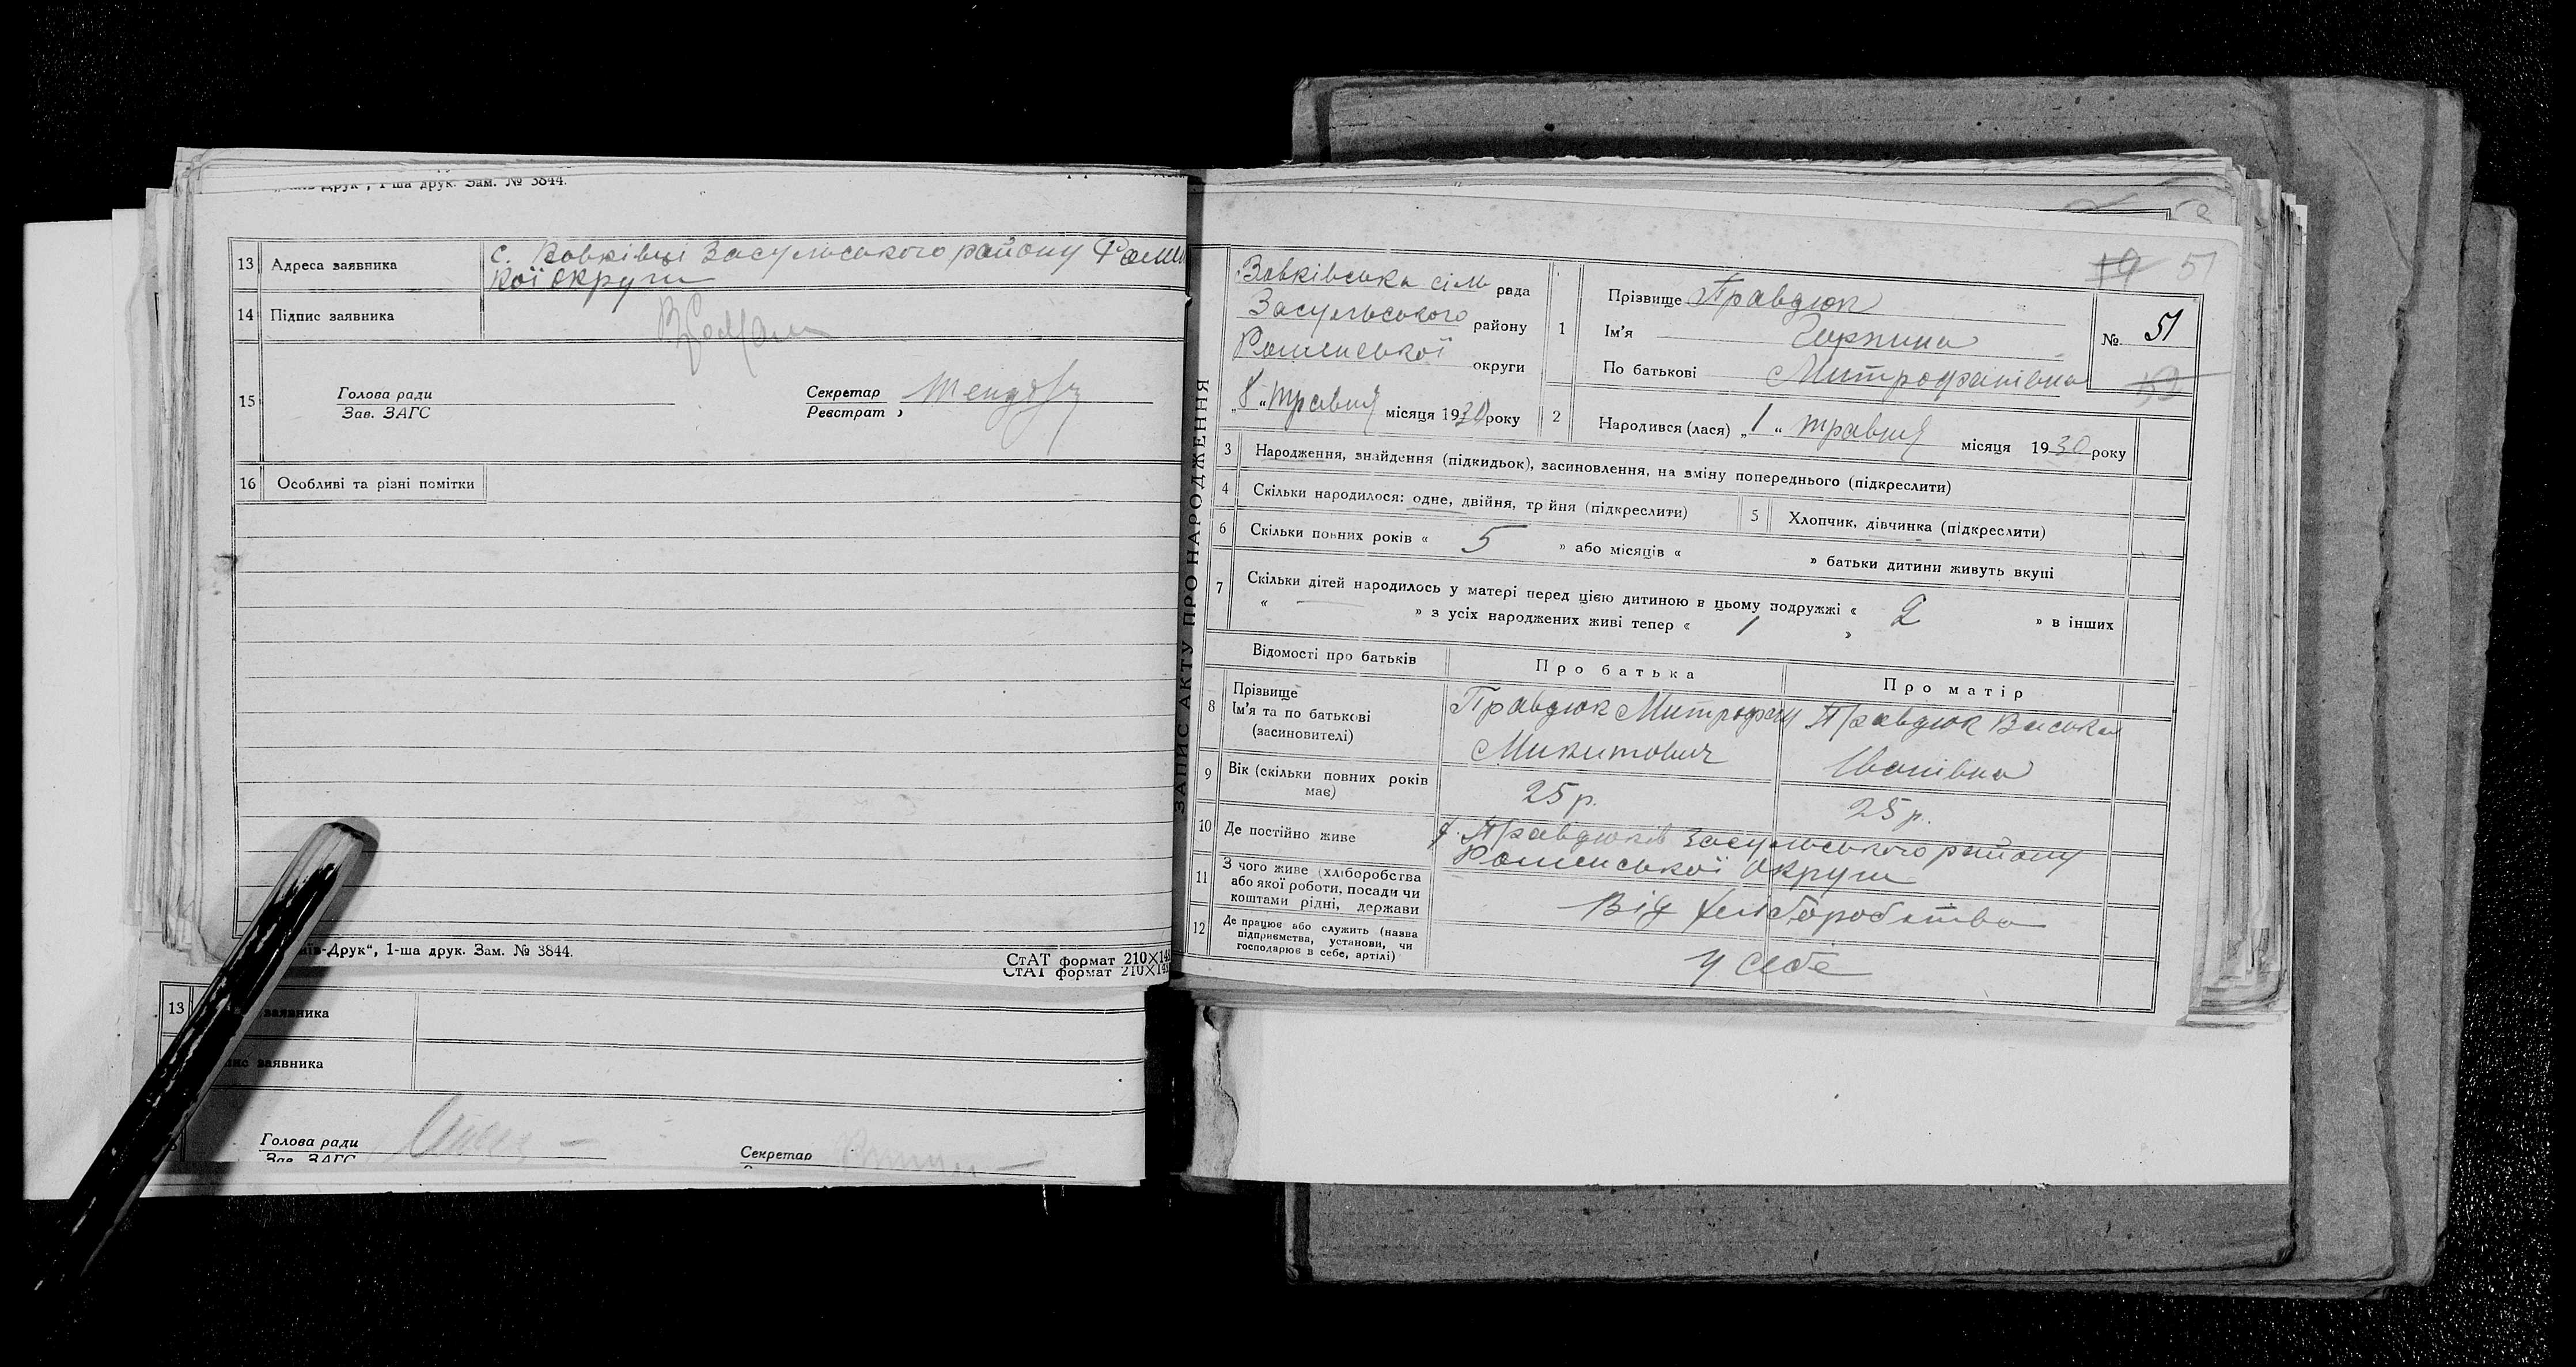 -Друк", 1-ша друк. Зам. № 3844.
13 Адреса заявника с. Вовківці Засульського району Роменсь
кої округи
14 Підпис заявника
15 Голова ради
Зав. ЗАГС
Секретар
Реєстрат
16 Особливі та різні помітки
їв-Друк", 1-ша друк. Зам. № 3844.
СтАТ формат 210×14
СтАТ формат 210×14
13 заявника
заявника
Голова ради
Зав. ЗАГС
Секретар
ЗАПИС АКТУ ПРО НАРОДЖЕННЯ
19 51
Вовківська сіль рада
Засульського району
Роменської округи
„8“ травня місяця 1930 року
1 Прізвище Правдюк
Ім'я
По батькові Митрофанівна
№ 51
2 Народився (лася) „1“ травня місяця 1930 року
3 Народження, знайдення (підкидьок), засиновлення, на зміну попереднього (підкреслити)
4 Скільки народилося: одне, двійня, трійня (підкреслити)
5 Хлопчик, дівчинка (підкреслити)
6 Скільки повних років « 5 » або місяців « » батьки дитини живуть вкупі
7 Скільки дітей народилось у матері перед цією дитиною в цьому подружжі « 2 » в інших
« — » з усіх народжених живі тепер « 1 »
Відомості про батьків
Про батька
Про матір
8 Прізвище
Ім'я та по батькові
(засиновителі)
Правдюк Митрофан
Микитович
Правдюк Васька
Іванівна
9 Вік (скільки повних років
має)
25 р.
25 р.
10 Де постійно живе х. Правдюків Засульського району
Роменської округи
11 З чого живе (хліборобства
або якої роботи, посади чи
коштами рідні, держави
Від хліборобства
12 Де працює або служить (назва
підприємства, установи, чи
господарює в себе, артілі)
У себе